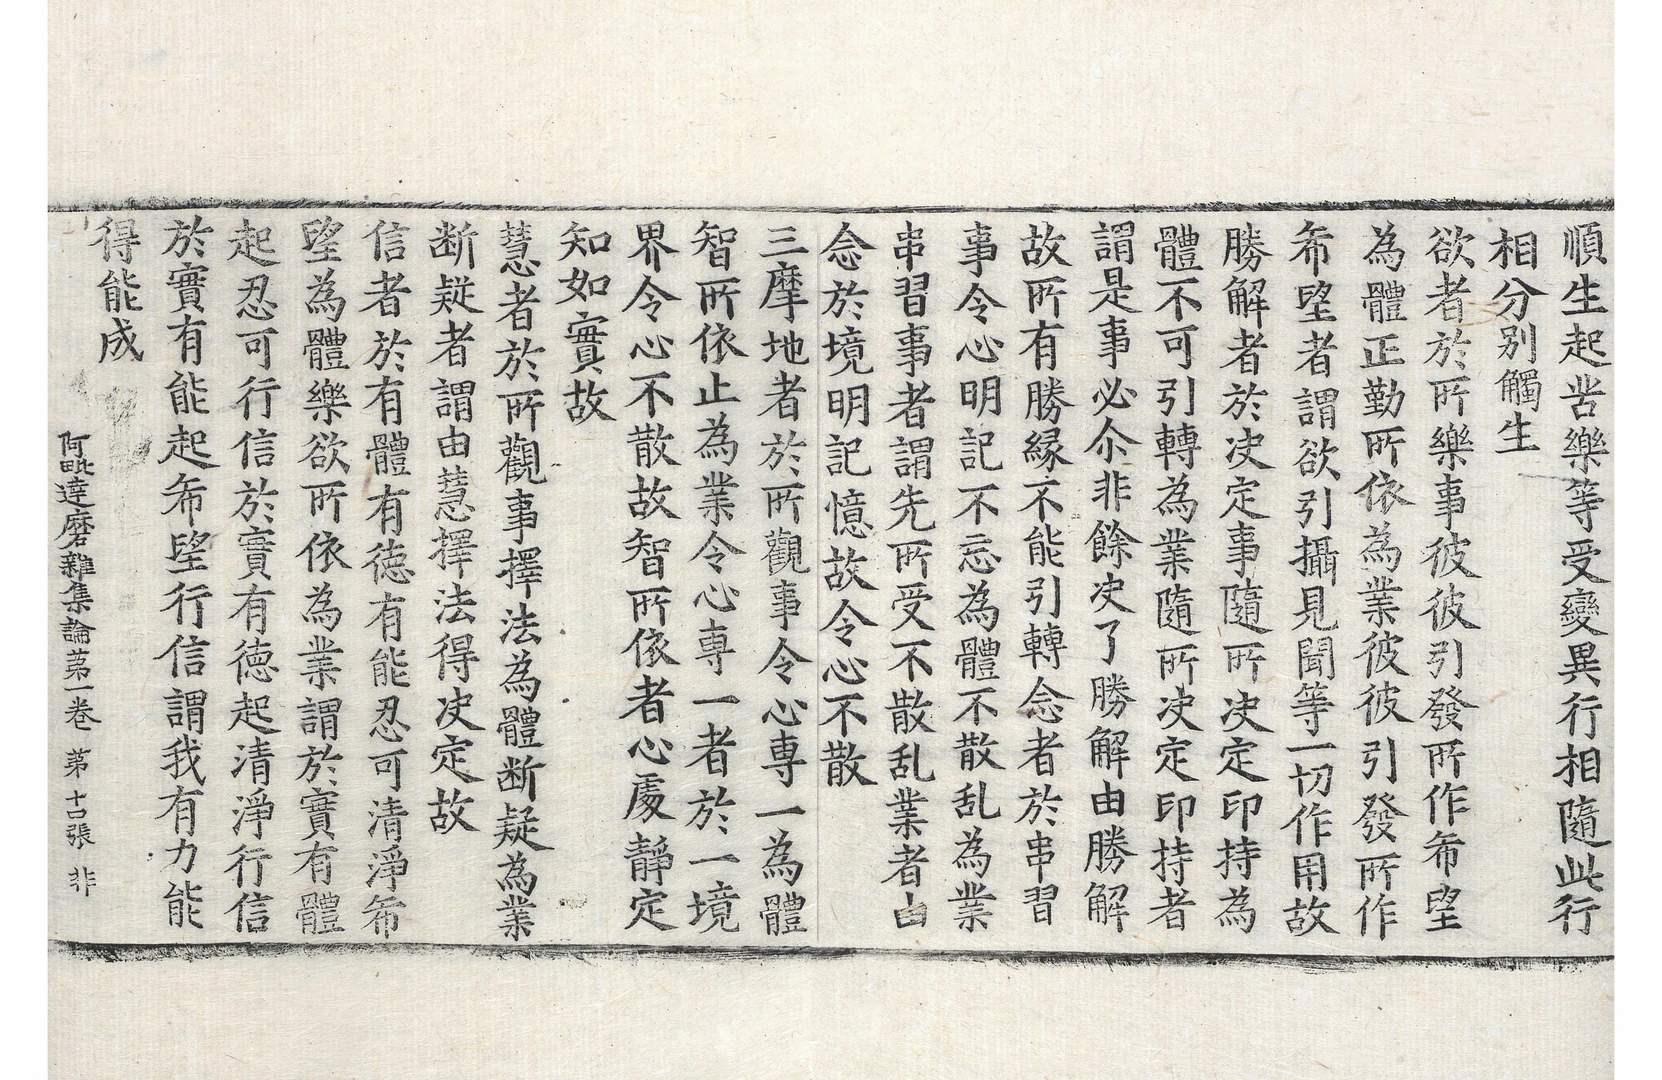 順生起苦樂等受變異行相隨此行
相分别觸生
欲者於所樂事彼彼引發所作希望
為體正勤所依為業彼彼引發所作
希望者謂欲引攝見聞等一切作用故
勝解者於决定事隨所决定印持為
體不可引轉為業隨所决定印持者
謂是事必尒非餘决了勝解由勝解
故所有勝縁不能引轉念者於串習
事令心明記不忘為體不散乱為業
串習事者謂先所受不散乱業者由
念於境明記憶故令心不散
三摩地者於所觀事令心専一為體
智所依止為業令心専一者於一境
界令心不散故智所依者心處靜定
知如實故
慧者於所觀事擇法為體断疑為業
断疑者謂由慧擇法得决定故
信者於有體有徳有能忍可清淨希
望為體樂欲所依為業謂於實有體
起忍可行信於實有徳起清淨行信
於實有能起希望行信謂我有力能
得能成
阿毗達磨雜集論苐一卷 苐十四張 非